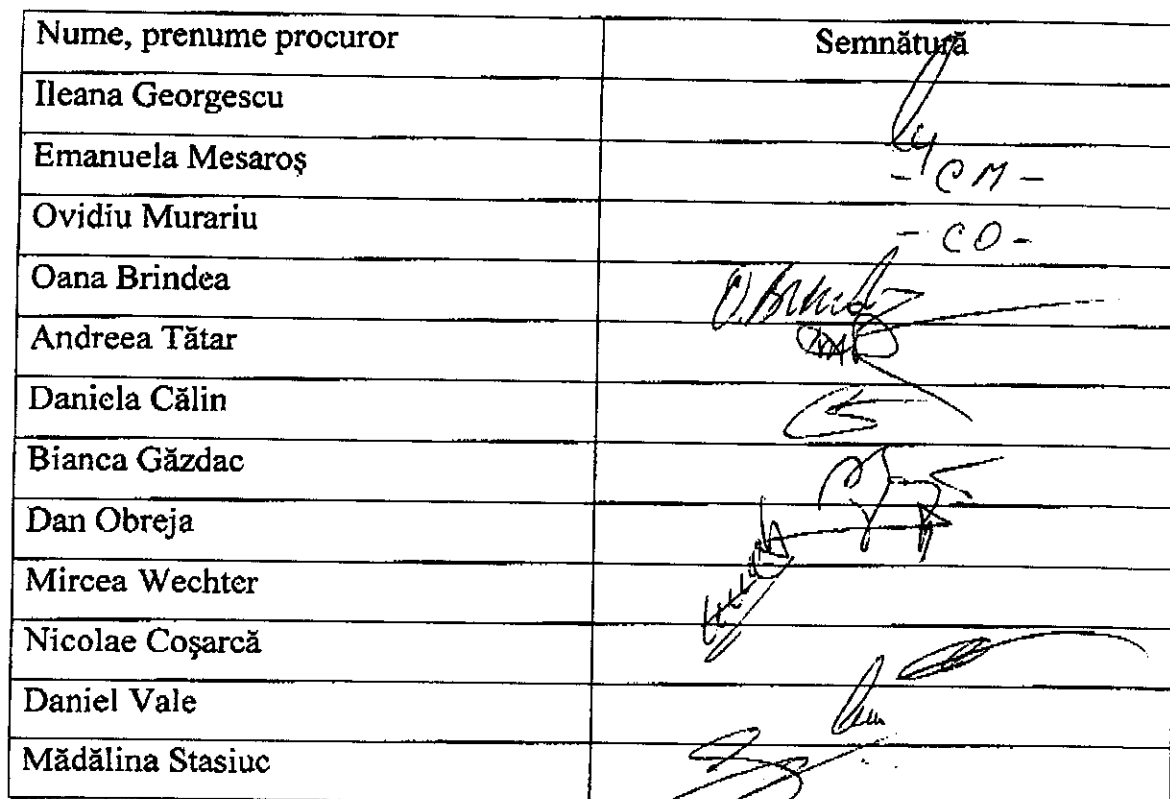 Nume, prenume procuror Semnătură
Ileana Georgescu
Emanuela Mesaroş - CM -
Ovidiu Murariu - CO -
Oana Brindea
Andreea Tătar
Daniela Călin
Bianca Găzdac
Dan Obreja
Mircea Wechter
Nicolae Coşarcă
Daniel Vale
Mădălina Stasiuc